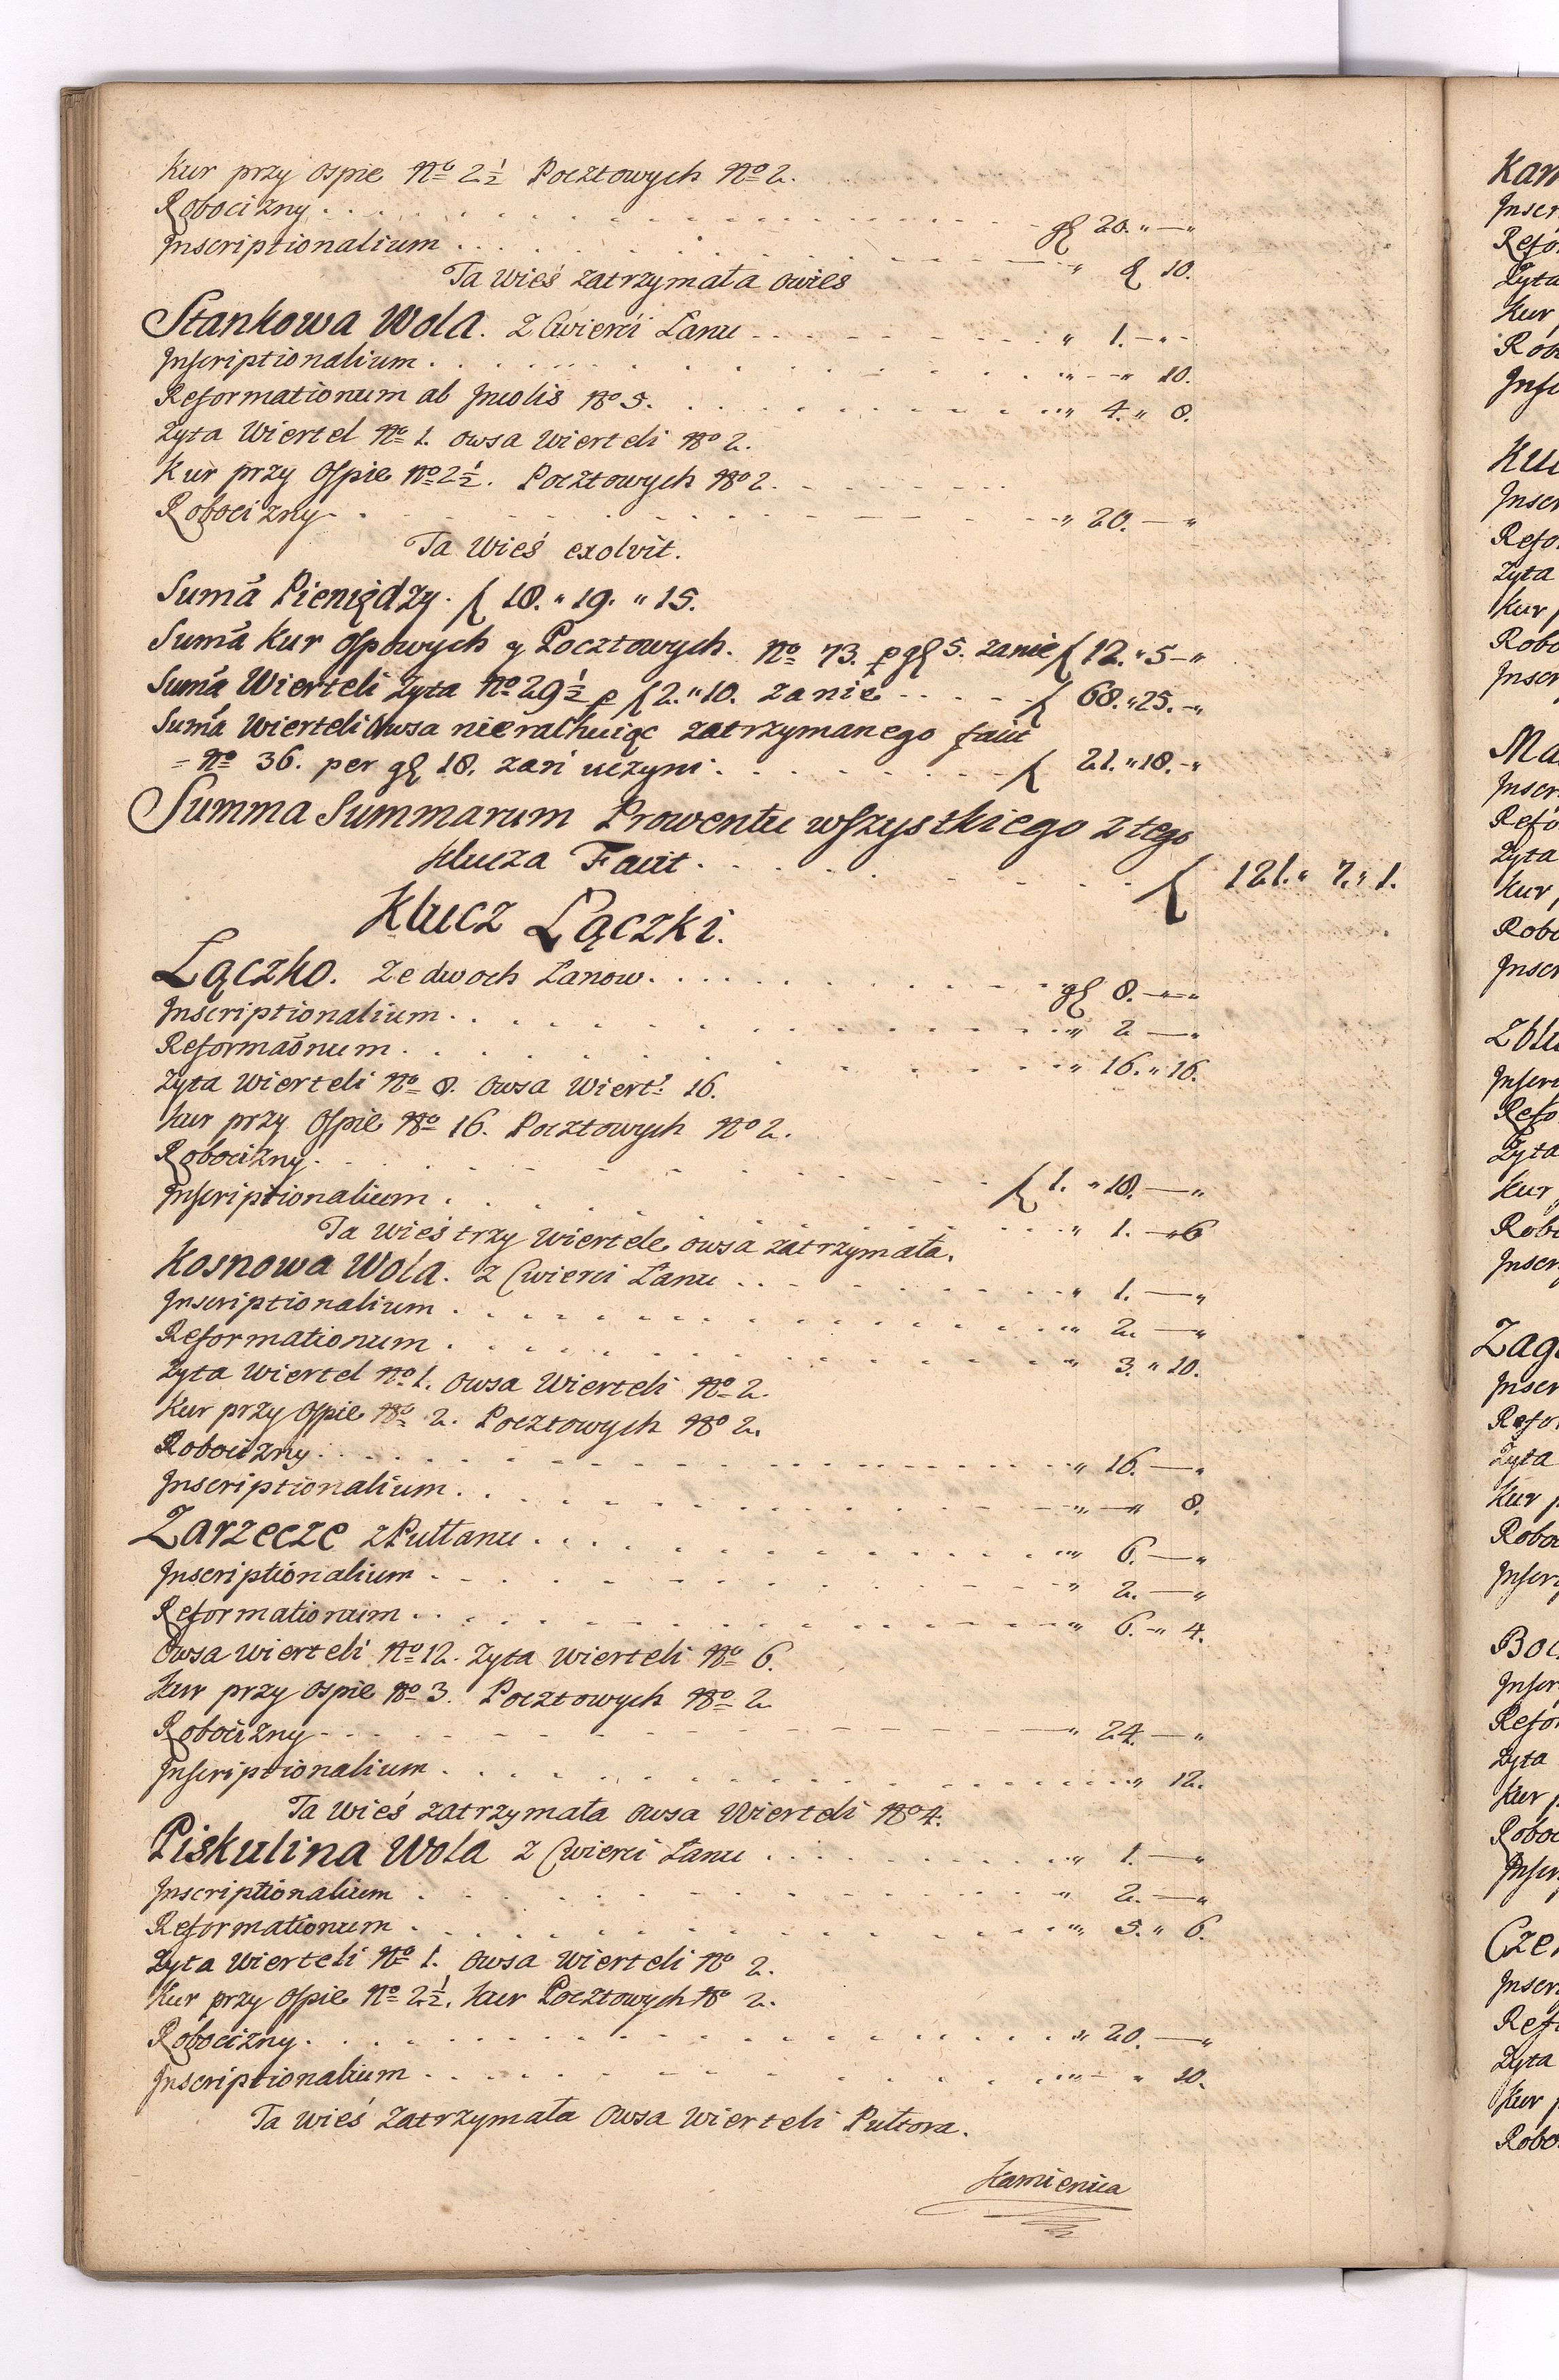 Kur przy ospie No 2½ Pocztowych No 2.
Robocizny . . . . gl 20. „ — „
Inscriptionalium . . . . „ 10.
Ta wieś zatrzymała owies
Stankowa Wola. Z Cwierći Łanu . . . . „ 1. — „ -
Inscriptionalium . . . . „ — „ 10.
Reformationum ab Incolis No 5. . . . . „ 4. „ 8.
Zyta Wiertel No 1. owsa Wierteli No 2.
Kur przy Ospie No 2½. Pocztowych No 2. . . . .
Robocizny . . . . „ 20. — „
Ta Wieś exolvit.
Suma Pieniędzy. f 18. „ 19. „ 15.
Suma Kur Ospowych y Pocztowych. No 73. p gl 5. zanie f 12. „ 5 — „
Suma Wierteli Zyta No 29½ p f 2. „ 10. zanie . . . . f 68. „ 25. — „
Suma Wierteli Owsa nierachuiąc zatrzymanego facit
= No 36. per gl 18. zań uczyni . . . . f 21. „ 18. — „
Summa Summarum Prowentu wszystkiego z tego
klucza Facit . . . . f 121. „ 7. „ 1.
Klucz Łączki.
Łączko. Ze dwoch Łanow. . . . . gl 8. — „
Inscriptionalium . . . . „ 2 — „
Reformaonum . . . . „ 16. „ 16.
Zyta Wierteli No 8. Owsa Wiert: 16.
Kur przy Ospie No 16. Pocztowych No 2.
Robocizny . . . . f 1. „ 18. — „
Inscriptionalium . . . . „ 1. — „ 6
Ta Wieś trzy Wiertele owsa zatrzymała.
Kosnowa Wola. Z Cwierci Łanu . . . . „ 1. — „
Inscriptionalium . . . . „ 2. — „
Reformationum . . . . „ 3. „ 10.
Zyta Wiertel No 1. Owsa Wierteli No 2.
Kur przy Ospie No 2. Pocztowych No 2.
Robocizny . . . . „ 16. — „
Inscriptionalium . . . . „ — „ 8.
Zarzecze z Pułłanu . . . . „ 6. — „
Inscriptionalium . . . . „ 2. — „
Reformationum . . . . „ 6. — „ 4.
Owsa Wierteli No 12. Zyta Wierteli No 6.
Kur przy ospie No 3. Pocztowych No 2
Robocizny . . . . „ 24. — „
Inscriptionalium . . . . „ 12.
Ta Wieś zatrzymała Owsa Wierteli No 4.
Piskulina Wola Z Cwierci Łanu . . . . „ 1. — „
Inscriptionalium . . . . „ 2. — „
Reformationum . . . . „ 5. „ 6.
Zyta Wierteli No 1. Owsa Wierteli No 2.
Kur przy Ospie No 2½. Kur Pocztowych No 2.
Robocizny . . . . „ 20. — „
Inscriptionalium . . . . „ — „ 10.
Ta Wieś Zatrzymała Owsa Wierteli Pułtora.
Kamienica